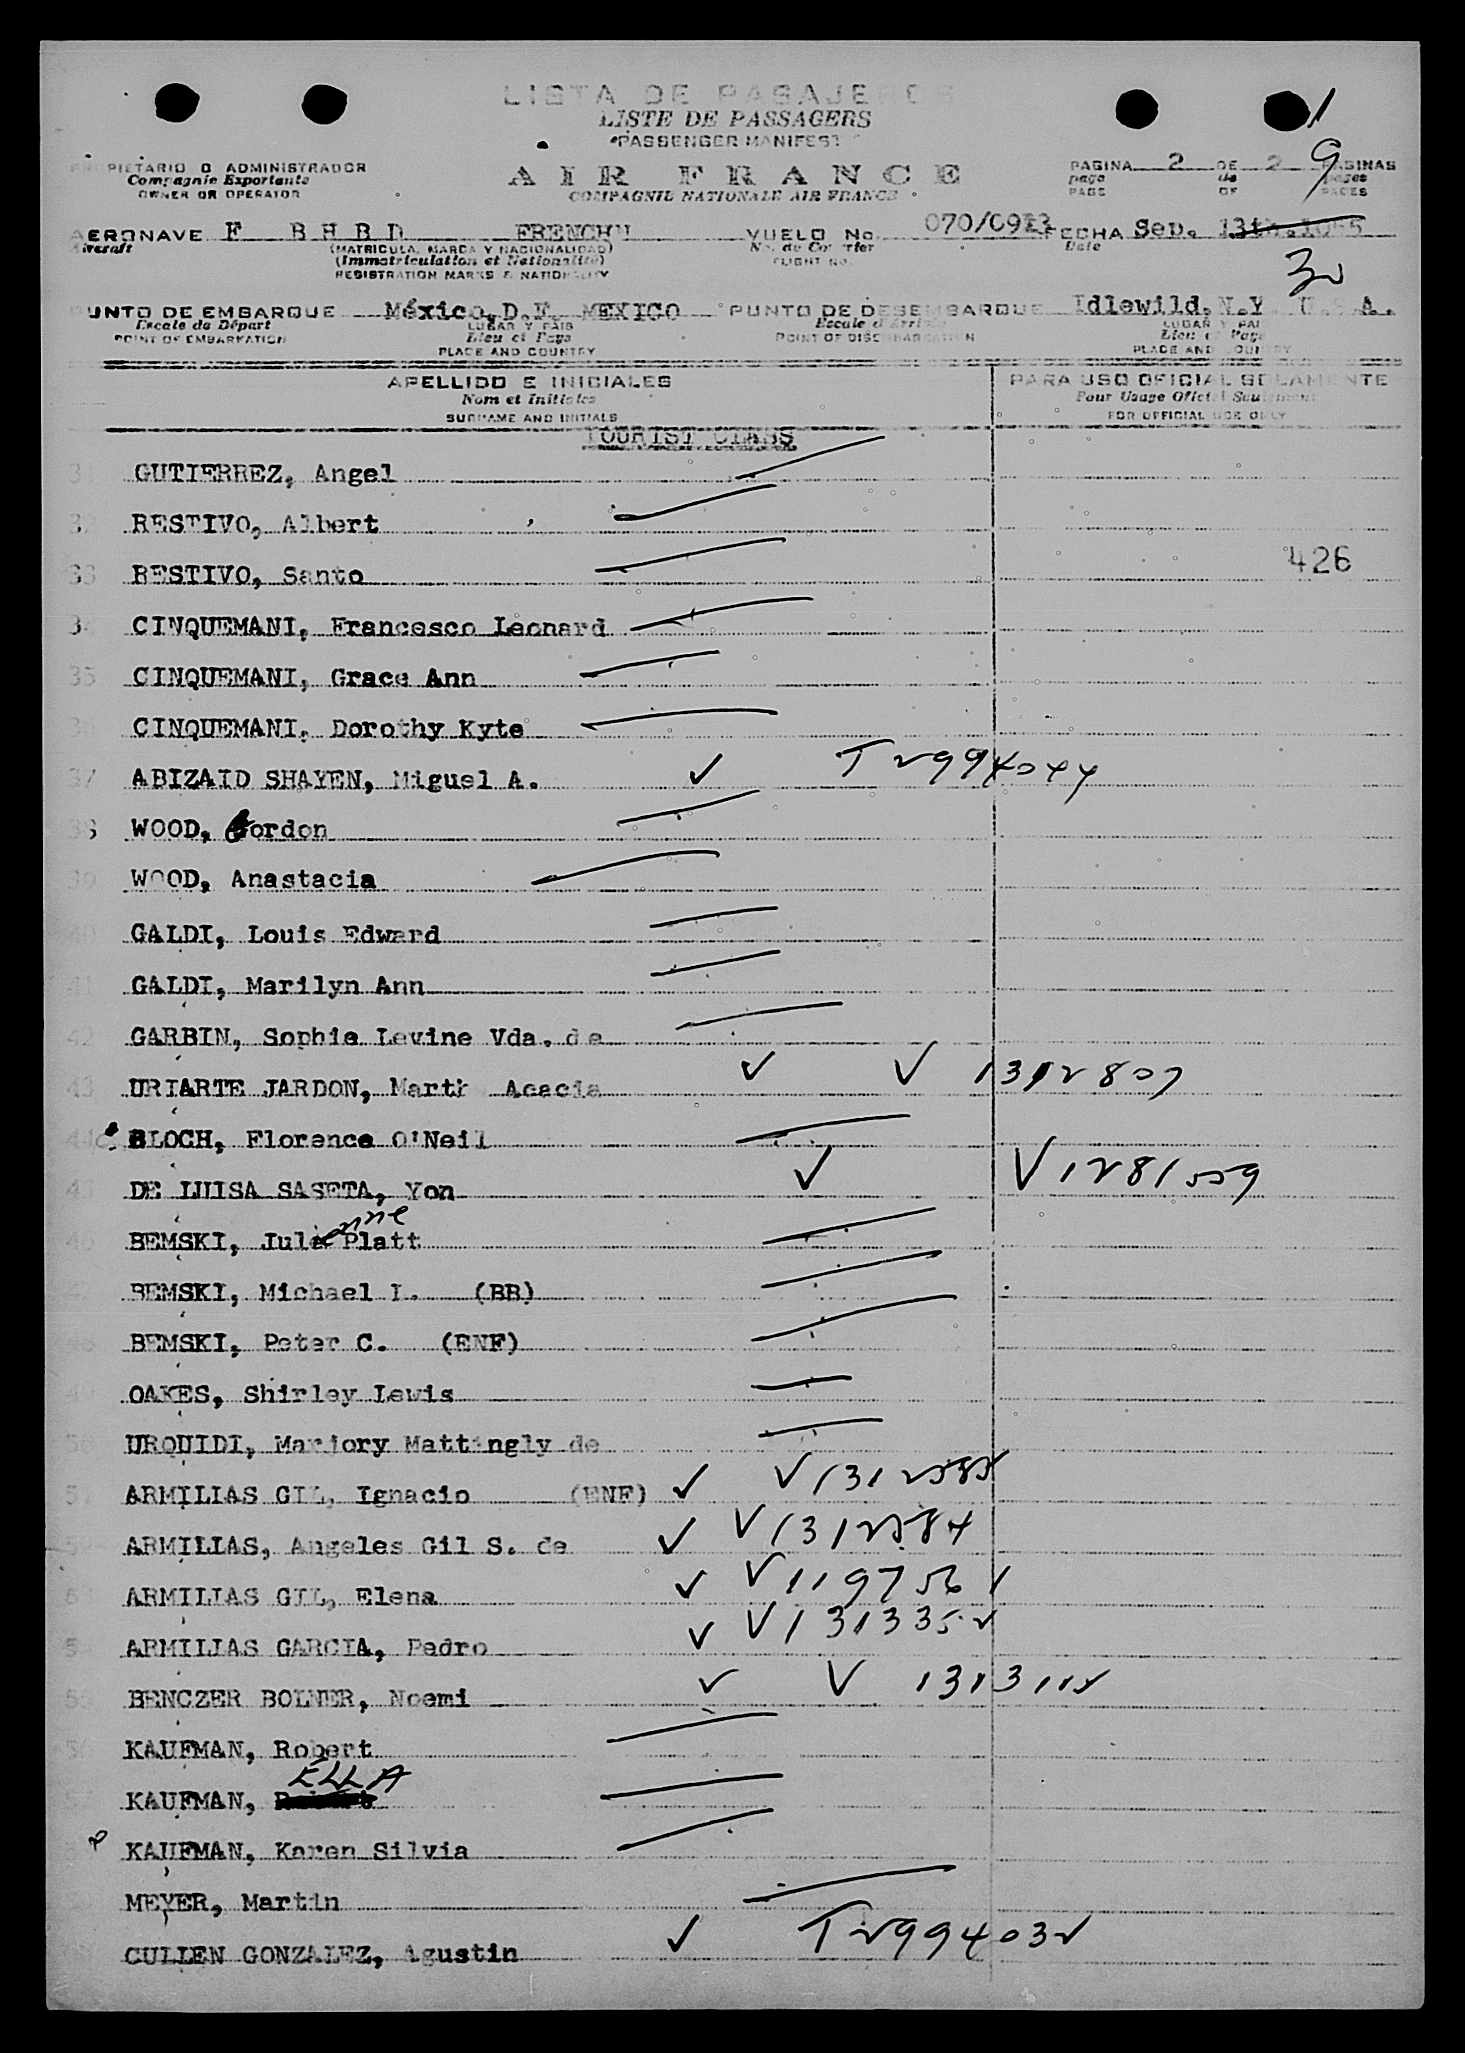 LISTA DE PASAJEROS
LISTE DE PASSAGERS
PASSENGER MANIFEST
1
9
PROPIETARIO O ADMINISTRADOR
Compagnie Exportante
OWNER OR OPERATOR
AIR FRANCE
COMPAGNIE NATIONALE AIR FRANCE
PAGINA 2 DE 2 PAGINAS
page de pages
PAGE OF PAGES
AERONAVE F BHBD FRENCH
Aircraft
(MATRICULA, MARCA Y NACIONALIDAD)
(Immatriculation et Nationalité)
REGISTRATION MARKS & NATIONALITY
VUELO No. 070/0913
No. de Courrier
FLIGHT No.
FECHA Sep. 13th.1955
Date
PUNTO DE EMBARQUE México,D.F. MEXICO
Escale de Départ
POINT OF EMBARKATION
LUGAR Y PAIS
Lieu et Pays
PLACE AND COUNTRY
PUNTO DE DESEMBARQUE Idlewild,N.Y. U.S.A.
Escale d'Arrivée
POINT OF DISEMBARKATION
LUGAR Y PAIS
Lieu et Pays
PLACE AND COUNTRY
APELLIDO E INICIALES
Nom et Initiales
SURNAME AND INITIALS
PARA USO OFICIAL SOLAMENTE
Pour Usage Oficiel Seulement
FOR OFFICIAL USE ONLY
TOURIST CLASS
31 GUTIERREZ, Angel
32 RESTIVO, Albert
33 RESTIVO, Santo 426
34 CINQUEMANI, Francesco Leonard
35 CINQUEMANI, Grace Ann
36 CINQUEMANI, Dorothy Kyte
37 ABIZAID SHAYEN, Miguel A. ✓ T2994044
38 WOOD, Gordon
39 WOOD, Anastacia
40 GALDI, Louis Edward
41 GALDI, Marilyn Ann
42 GARBIN, Sophie Levine Vda. de
43 URIARTE JARDON, Marth Acacia ✓ V 1312807
44 BLOCH, Florence O'Neil
45 DE LUISA SASETA, Yon ✓ V1281559
enne
46 BEMSKI, Julie Platt
47 BEMSKI, Michael I. (BB)
48 BEMSKI, Peter C. (ENF)
49 OAKES, Shirley Lewis
50 URQUIDI, Marjory Mattingly de
51 ARMILIAS GIL, Ignacio (ENF) ✓
52 ARMILIAS, Angeles Gil S. de ✓ V1312584
53 ARMILIAS GIL, Elena ✓ V1197561
54 ARMILIAS GARCIA, Pedro ✓ V1313352
55 BENCZER BOLNER, Noemi ✓ V
56 KAUFMAN, Robert
ELLA
57 KAUFMAN,
KAUFMAN, Karen Silvia
MEYER, Martin
CULLEN GONZALEZ, Agustin ✓ T2994032